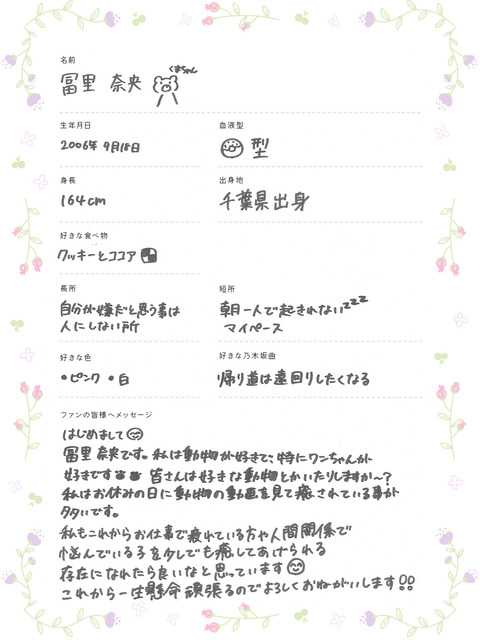 名前
冨里 奈央 くまちゃん
生年月日
2006年 9月18日
血液型
型
身長
164cm
出身地
千葉県出身
好きな食べ物
クッキーとココア
長所
自分が嫌だと思う事は
人にしない所
短所
朝一人で起きれないzzz
マイペース
好きな色
・ピンク ・白
好きな乃木坂曲
帰り道は遠回りしたくなる
ファンの皆様へメッセージ
はじめまして
冨里 奈央です。私は動物が好きで、特にワンちゃんが
好きです 皆さんは好きな動物とかいたりしますか〜?
私はお休みの日に動物の動画を見て癒されている事が
多いです。
私もこれからお仕事で疲れている方や人間関係で
悩んでいる子を少しでも癒してあげられる
存在になれたら良いなと思っています
これから一生懸命頑張るのでよろしくおねがいします!!